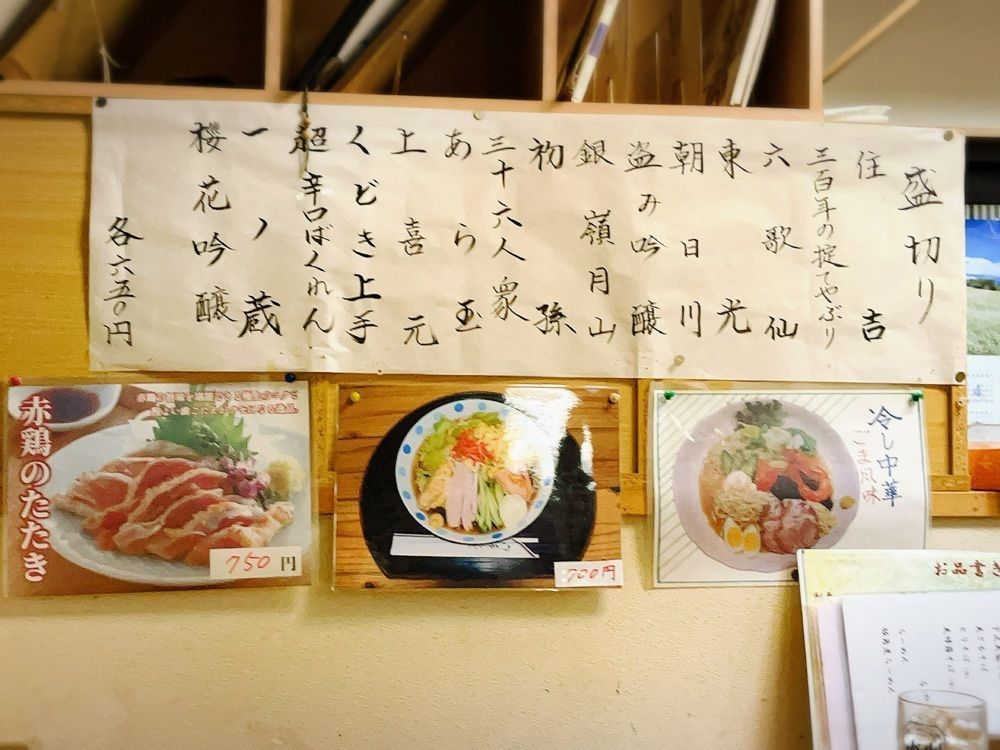 盛切り
住吉
三百年の掟やぶり
六歌仙
東光
朝日川
盗み吟醸
銀嶺月山
初孫
三十六人衆
あら玉
上喜元
くどき上手
超辛口ばくれん
一ノ蔵
桜花吟醸
各六五〇円
赤鶏のたたき
750円
700円
冷し中華
ごま風味
お品書き